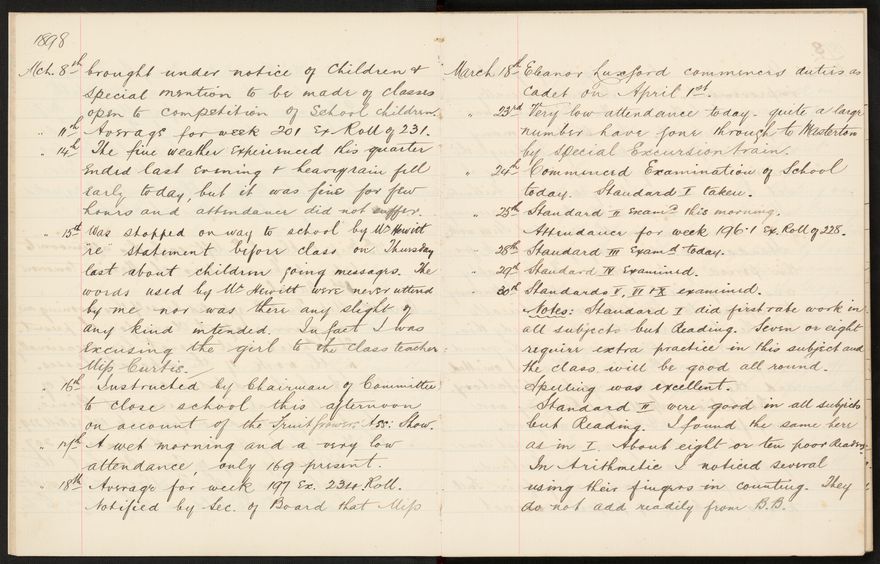 1898
Mch. 8th brought under notice of Children &
special mention to be made of classes
open to competition of School children.
" 11th Average for week 201 Ex Roll of 231.
" 14th The fine weather experienced this quarter
ended last evening & heavy rain fell
early today, but it was fine for few
hours and attendance did not suffer.
" 15th Was stopped on way to school by Mr Hewitt
"re" statement before class on Thursday
last about children going messages. The
words used by Mr Hewitt were never uttered
by me nor was there any slight of
any kind intended. In fact I was
excusing the girl to the class teacher
Miss Curtis.
" 16th Instructed by Chairman of Committee
to close school this afternoon
on account of the Fruitgrowers Ass: Show.
" 17th A wet morning and a very low
attendance, only 169 present.
" 18th Average for week 197 Ex. 234 Roll.
Notified by Sec. of Board that Miss
March 18th Eleanor Luxford commences duties as
Cadet on April 1st.
" 23rd Very low attendance today - quite a large
number have gone through to Masterton
by Special Excursion train.
" 24th Commenced Examination of School
today. Standard I taken.
" 25th Standard II Examd this morning.
Attendance for week 196.1 Ex. Roll of 228.
" 28th Standard III Examd today.
" 29th Standard IV Examined.
" 30th Standards V, VI & X examined.
Notes: Standard I did first rate work in
all subjects but Reading. Seven or eight
require extra practice in this subject and
the class will be good all round.
Spelling was excellent.
Standard II were good in all subjects
but Reading. I found the same here
as in I. About eight or ten poor Readers.
In Arithmetic I noticed several
using their fingers in counting. They
do not add readily from B.B.